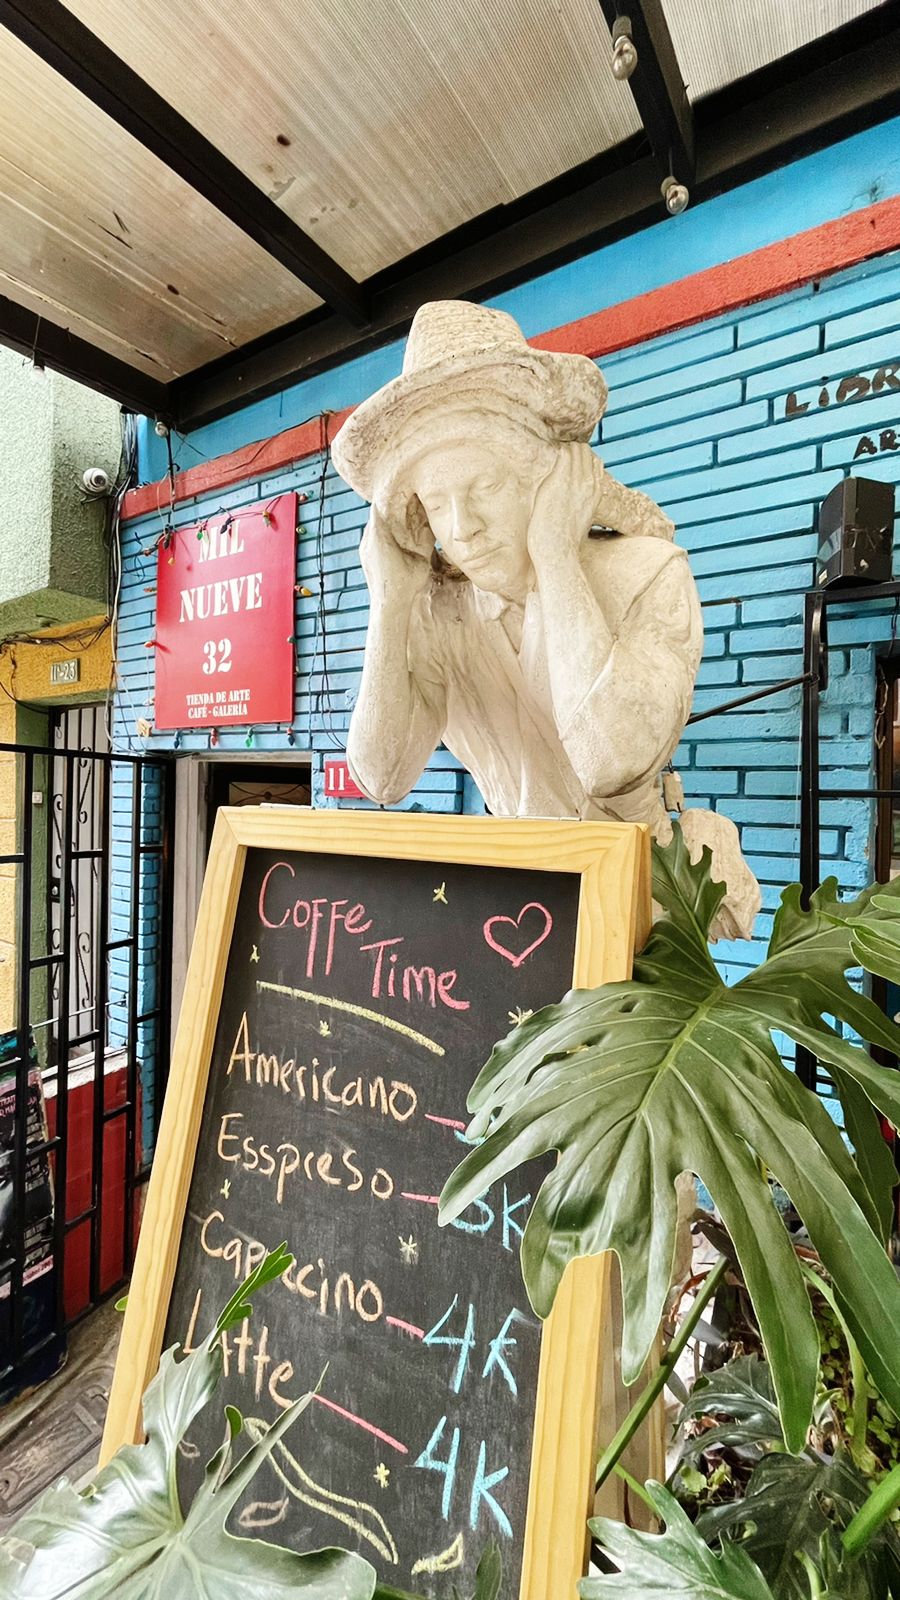 LIBR
AR
MIL
NUEVE
32
TIENDA DE ARTE
CAFÉ - GALERÍA
11-23
11
Coffe
Time
Americano
Esspreso 3K
Capuccino 4K
Latte 4K